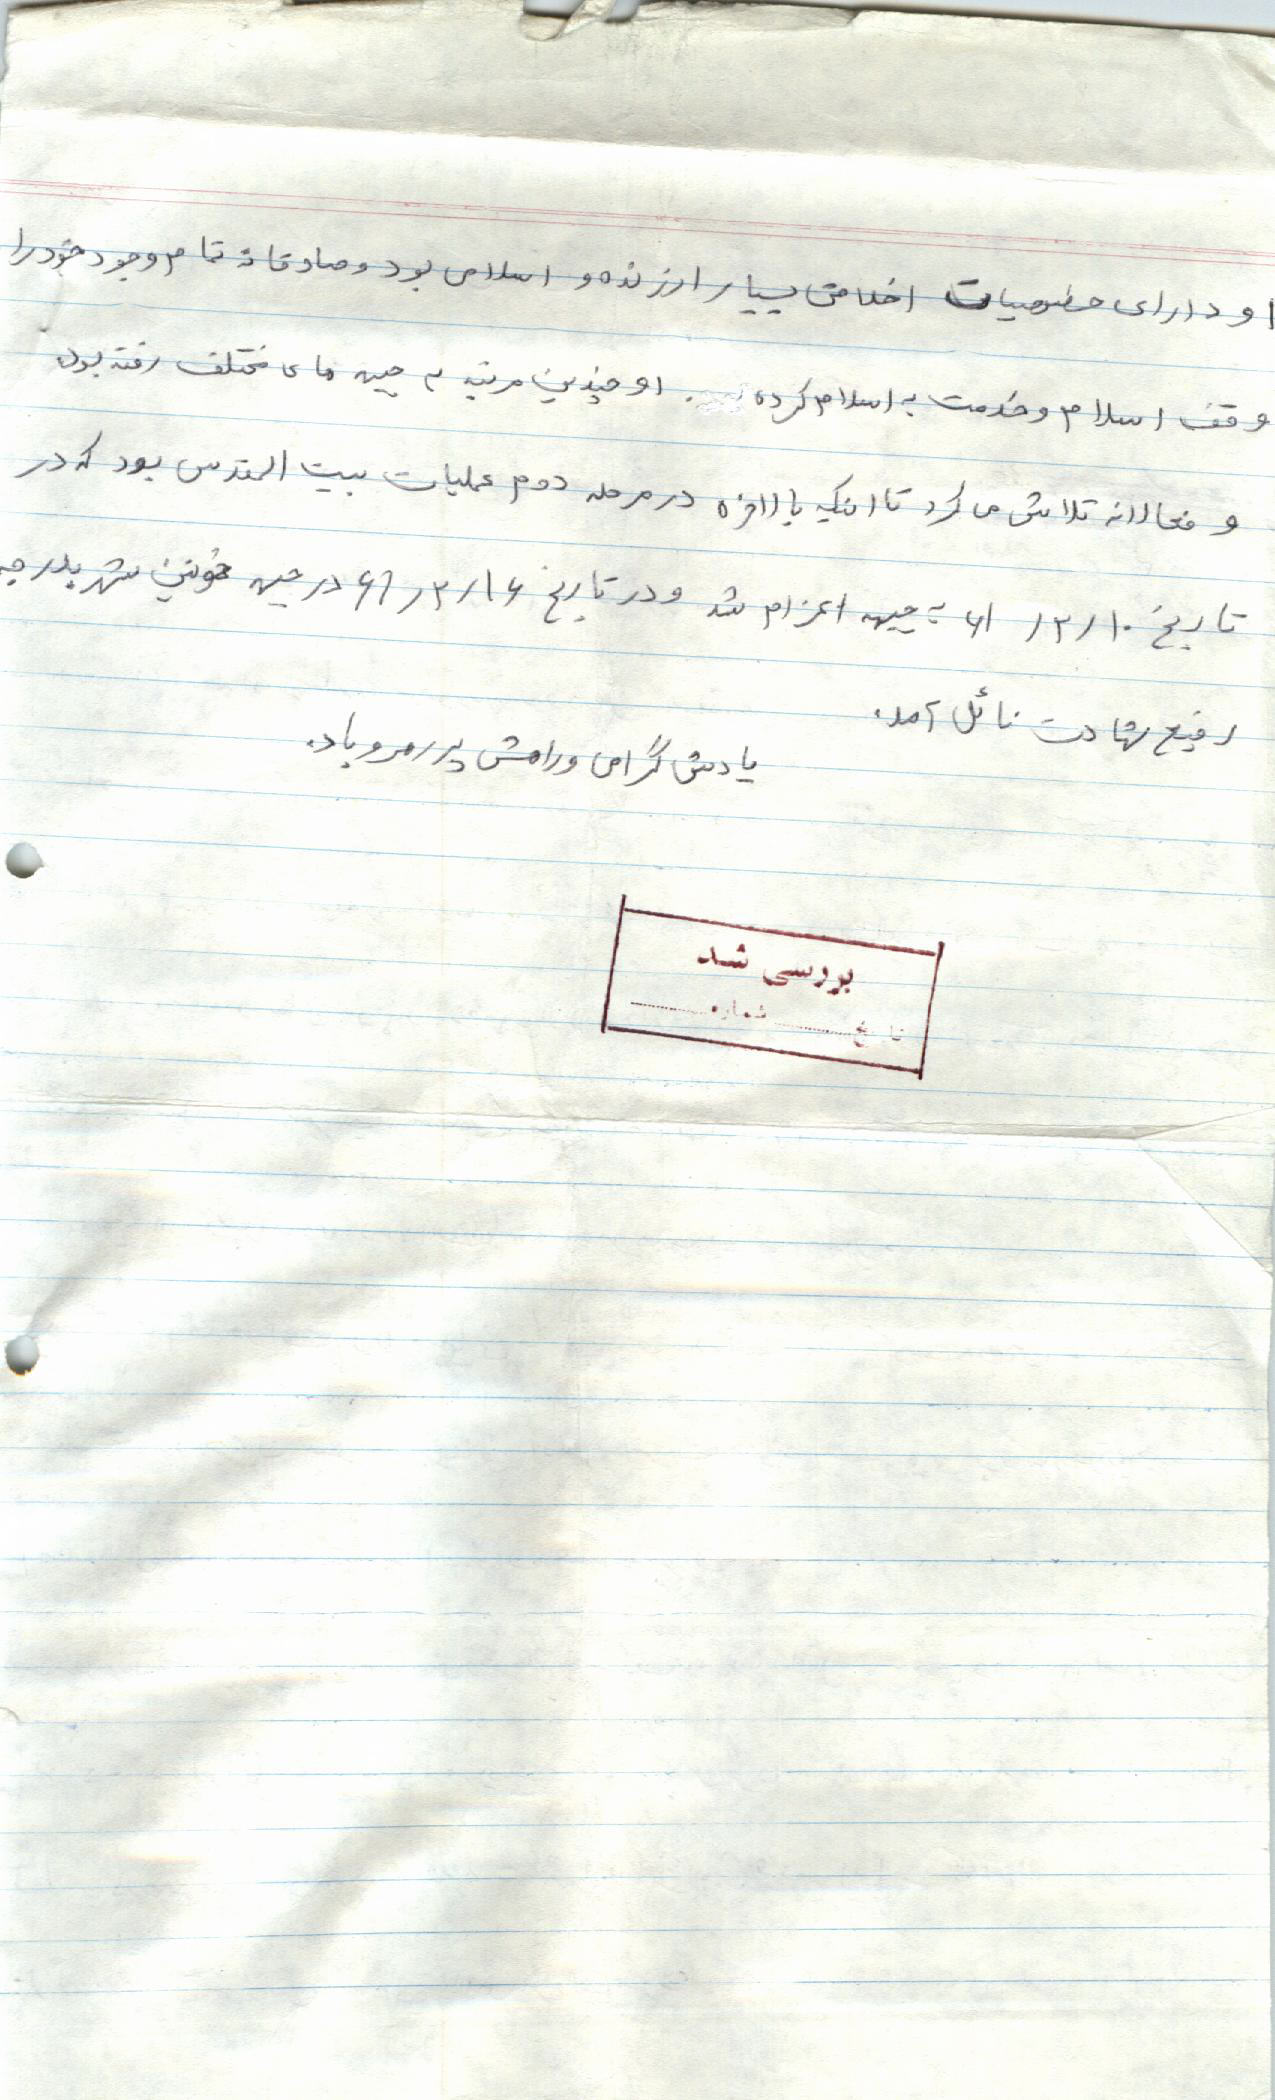 او دارای خصوصیات اخلاقی بسیار ارزنده و اسلامی بود و صادقانه تمام وجود خود را
وقف اسلام و خدمت به اسلام کرده . او چندین مرتبه به جبهه های مختلف رفته بود
و فعالانه تلاش می کرد تا اینکه بالاخره در مرحله دوم عملیات بیت المقدس بود که در
تاریخ ۶۱/۲/۱۰ به جبهه اعزام شد و در تاریخ ۶۱/۲/۱۶ در جبهه خونین شهر بدرجه
رفیع شهادت نائل آمد.
یادش گرامی و راهش پر رهرو باد.
بررسی شد
تاریخ ........ شماره ........